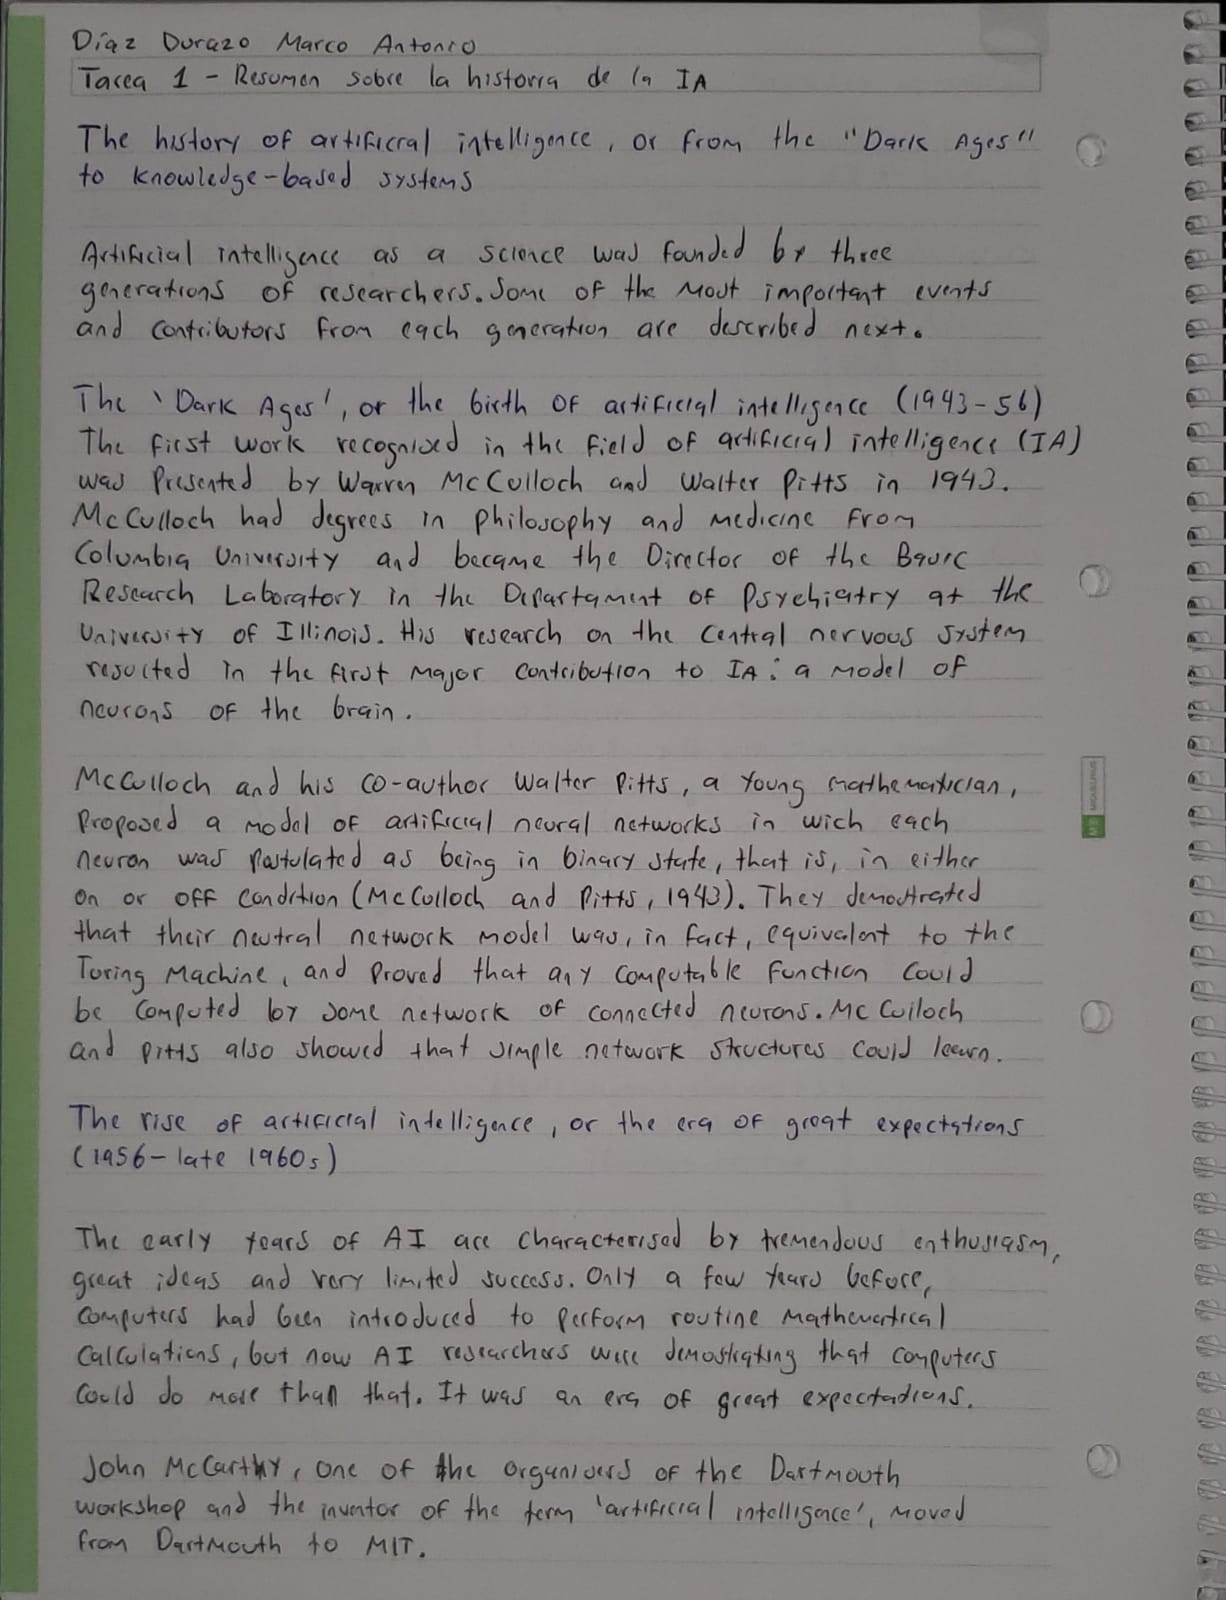 Díaz Durazo Marco Antonio
Tarea 1 - Resumen sobre la historia de la IA
The history of artificial intelligence, or from the "Dark Ages"
to knowledge-based systems
Artificial intelligence as a science was founded by three
generations of researchers. Some of the most important events
and contributors from each generation are described next.
The 'Dark Ages', or the birth of artificial intelligence (1943-56)
The first work recognised in the field of artificial intelligence (IA)
was presented by Warren McCulloch and Walter Pitts in 1943.
McCulloch had degrees in philosophy and medicine from
Columbia University and became the Director of the Basic
Research Laboratory in the Departament of Psychiatry at the
University of Illinois. His research on the central nervous system
resulted in the first major contribution to IA: a model of
neurons of the brain.
McCulloch and his co-author Walter Pitts, a young mathematician,
proposed a model of artificial neural networks in wich each
neuron was postulated as being in binary state, that is, in either
on or off condition (McCulloch and Pitts, 1943). They demostrated
that their neutral network model was, in fact, equivalent to the
Turing machine, and proved that any computable function could
be computed by some network of connected neurons. McCulloch
and Pitts also showed that simple network structures could learn.
The rise of artificial intelligence, or the era of great expectations
(1956-late 1960s)
The early years of AI are characterised by tremendous enthusiasm,
great ideas and very limited success. Only a few years before,
computers had been introduced to perform routine mathematical
calculations, but now AI researchers were demostrating that computers
could do more than that. It was an era of great expectations.
John McCarthy, one of the organisers of the Dartmouth
workshop and the inventor of the term 'artificial intelligence', moved
from Dartmouth to MIT.